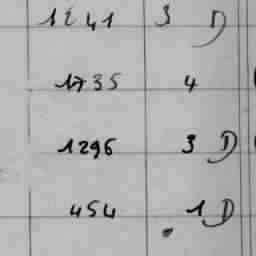 1241 3 D
1735 4
1296 3 D
454 1 D